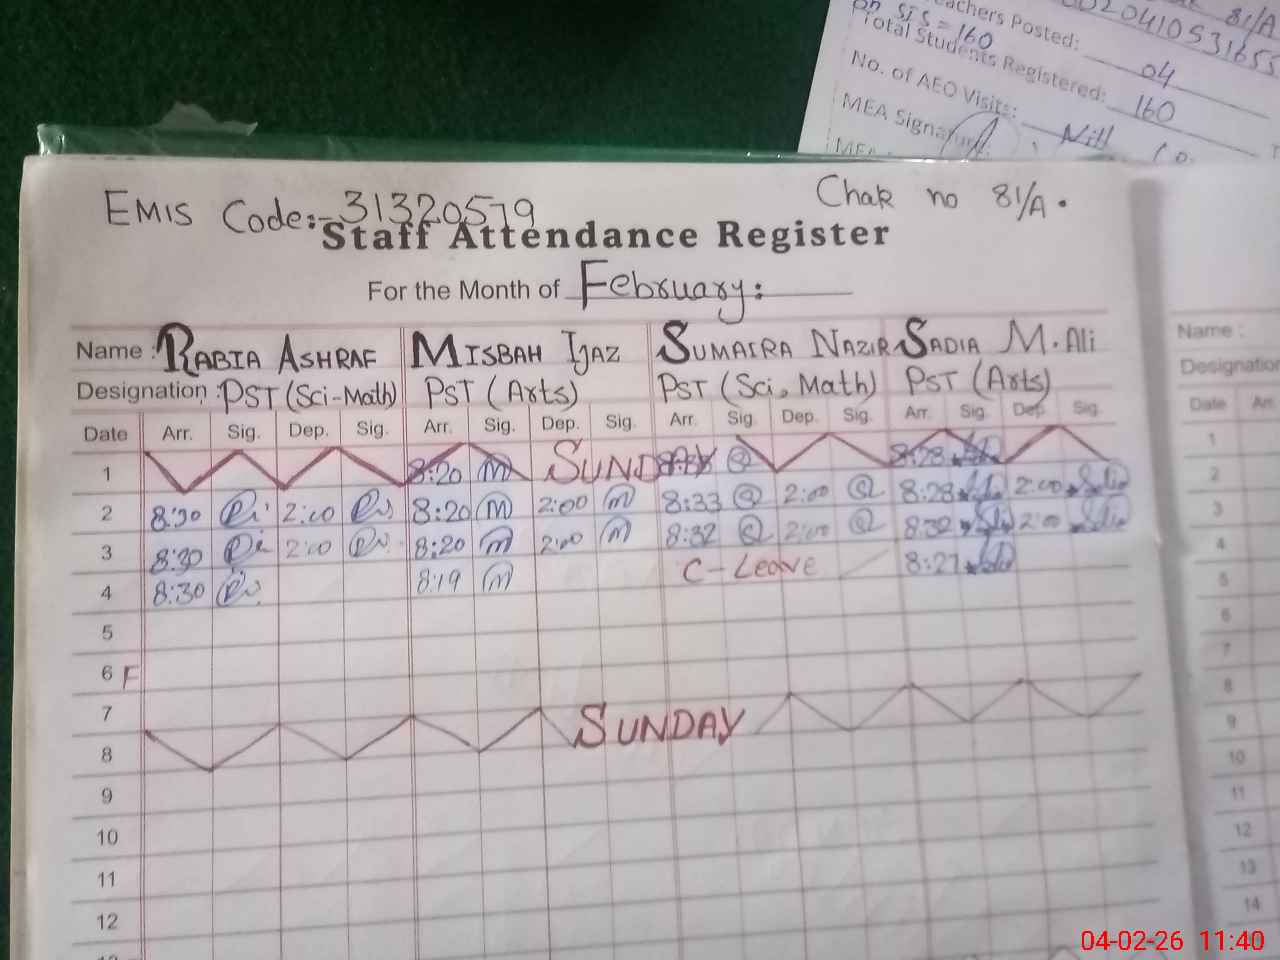 on SIS = 160
81/A
0020410531655
eachers Posted: 04
Total Students Registered: 160
No. of AEO Visits: Nill
MEA Signature:
EMIS Code:- 31320579
Chak no 81/A.
Staff Attendance Register
For the Month of February:
Name : RABIA ASHRAF MISBAH IJAZ SUMAIRA NAZIR SADIA M. Ali
Designation : PST (Sci-Math) PST (Arts) PST (Sci, Math) PST (Arts)
Date Arr. Sig. Dep. Sig. Arr. Sig. Dep. Sig. Arr. Sig. Dep. Sig. Arr. Sig. Dep. Sig.
1 8:20 m SUND 8:28
2 8:30 2:00 8:20 m 2:00 m 8:33 2:00 8:28 2:00
3 8:30 2:00 8:20 m 2:00 m 8:32 2:00 8:32 2:00
4 8:30 8:19 m C-Leave 8:27
5
6 F
7
8 SUNDAY
9
10
11
12
Name :
Designation
Date Arr.
1
2
3
4
5
6
7
8
9
10
11
12
13
14
04-02-26 11:40